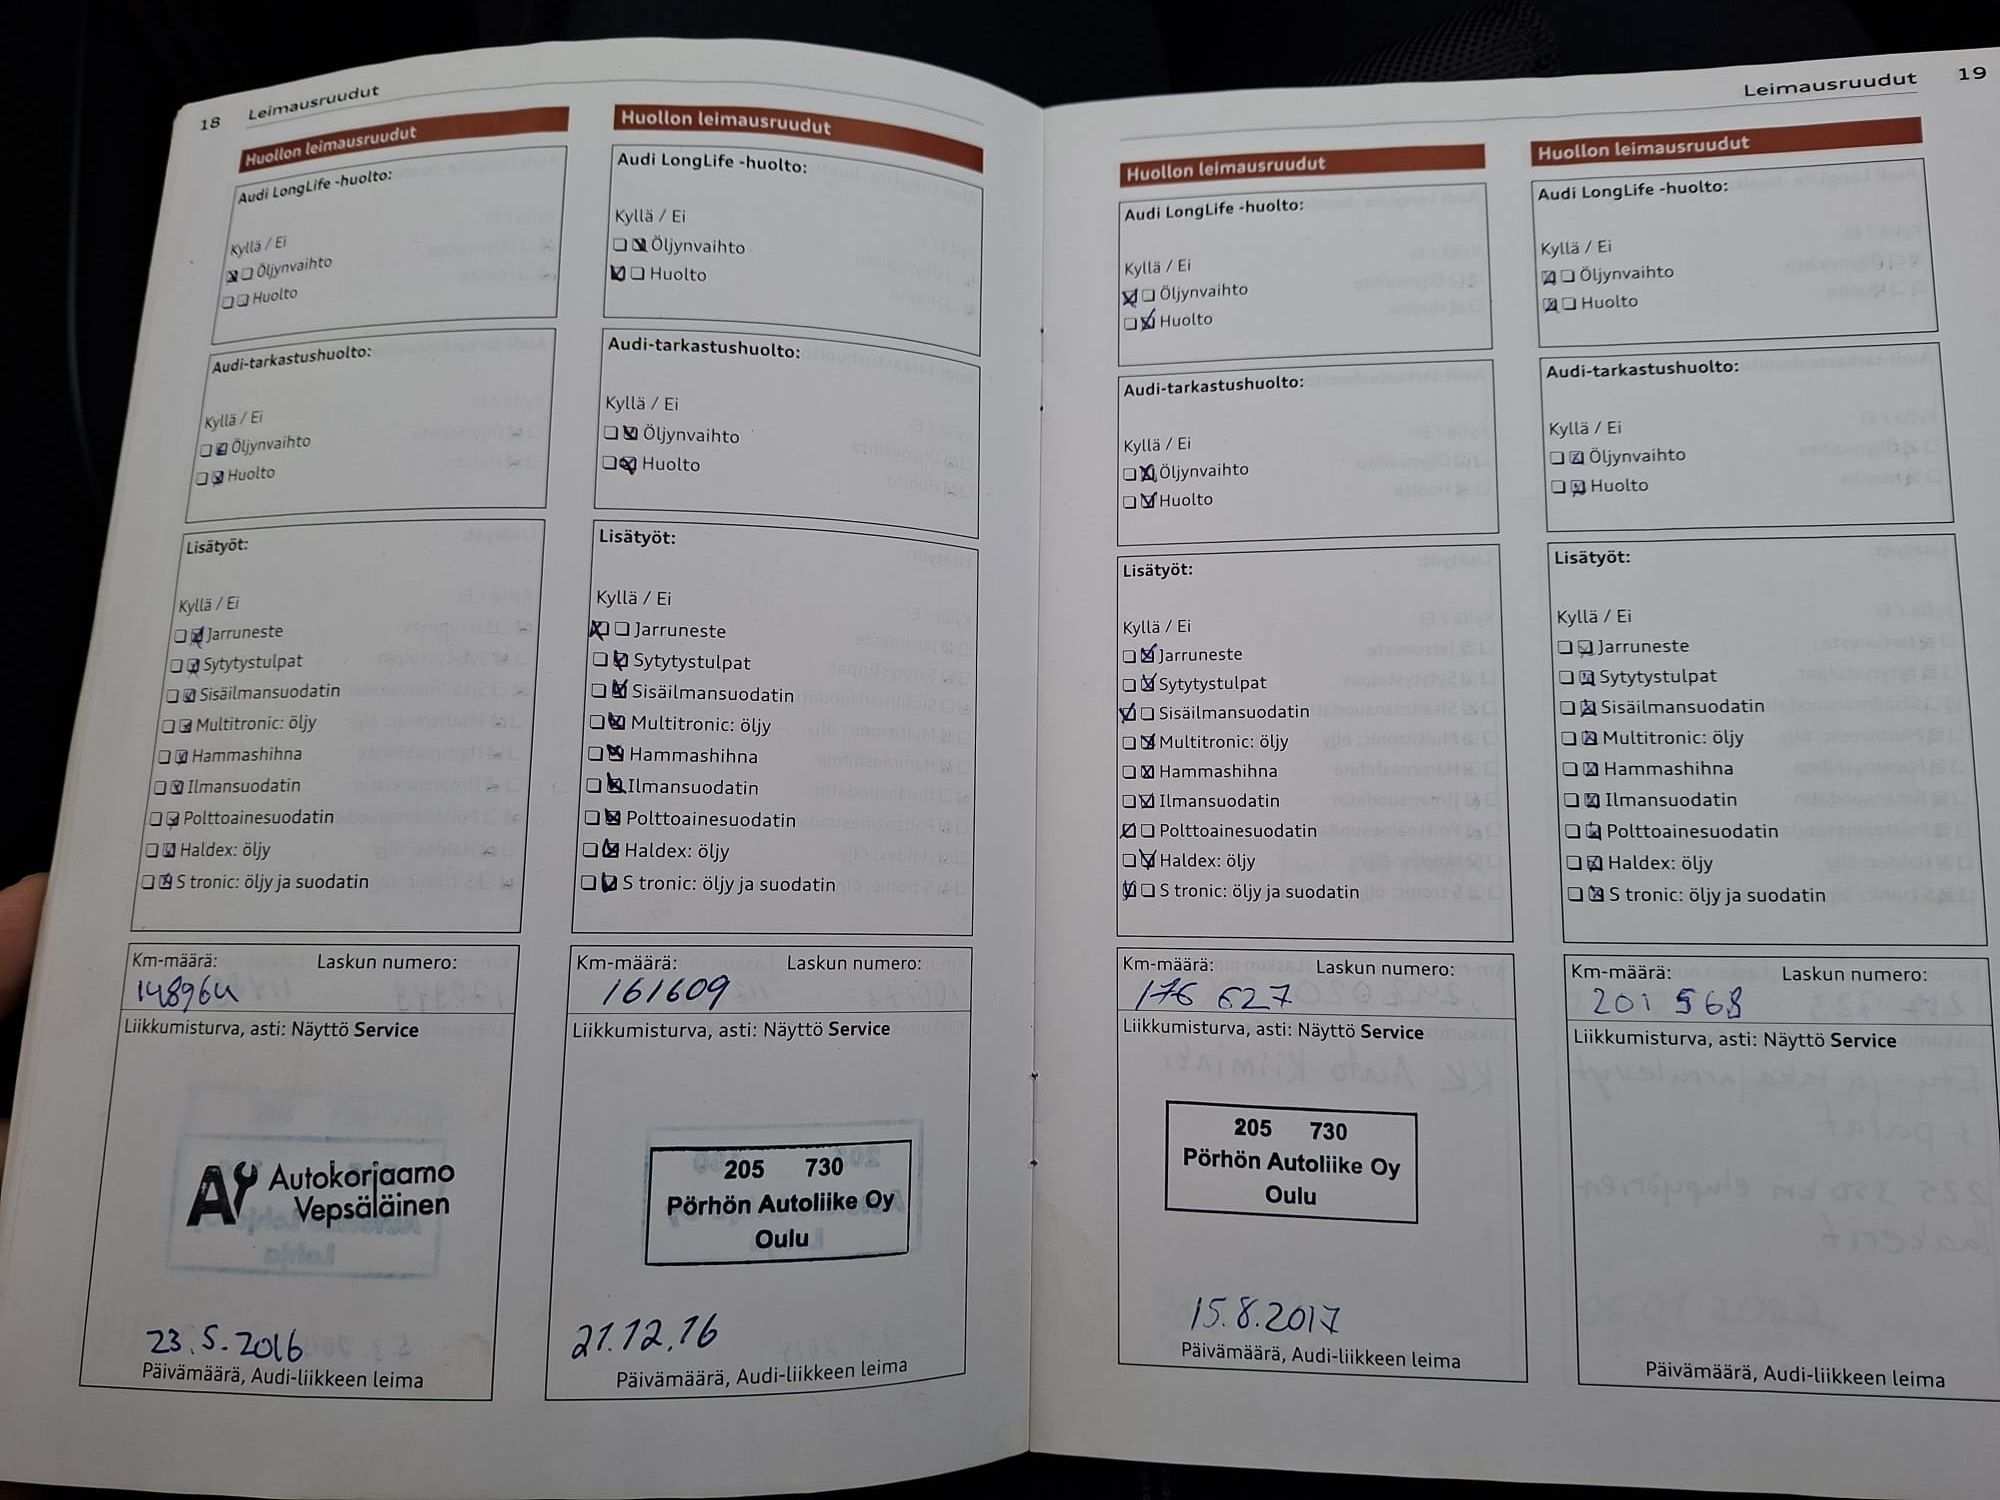 18 Leimausruudut
Huollon leimausruudut
Audi LongLife -huolto:
Kyllä / Ei
Öljynvaihto
Huolto
Audi-tarkastushuolto:
Kyllä / Ei
Öljynvaihto
Huolto
Lisätyöt:
Kyllä / Ei
Jarruneste
Sytytystulpat
Sisäilmansuodatin
Multitronic: öljy
Hammashihna
Ilmansuodatin
Polttoainesuodatin
Haldex: öljy
S tronic: öljy ja suodatin
Km-määrä: Laskun numero:
148964
Liikkumisturva, asti: Näyttö Service
AY Autokorjaamo
Vepsäläinen
23.5.2016
Päivämäärä, Audi-liikkeen leima
Huollon leimausruudut
Audi LongLife -huolto:
Kyllä / Ei
Öljynvaihto
Huolto
Audi-tarkastushuolto:
Kyllä / Ei
Öljynvaihto
Huolto
Lisätyöt:
Kyllä / Ei
Jarruneste
Sytytystulpat
Sisäilmansuodatin
Multitronic: öljy
Hammashihna
Ilmansuodatin
Polttoainesuodatin
Haldex: öljy
S tronic: öljy ja suodatin
Km-määrä: Laskun numero:
161609
Liikkumisturva, asti: Näyttö Service
205 730
Pörhön Autoliike Oy
Oulu
21.12.16
Päivämäärä, Audi-liikkeen leima
Leimausruudut 19
Huollon leimausruudut
Audi LongLife -huolto:
Kyllä / Ei
Öljynvaihto
Huolto
Audi-tarkastushuolto:
Kyllä / Ei
Öljynvaihto
Huolto
Lisätyöt:
Kyllä / Ei
Jarruneste
Sytytystulpat
Sisäilmansuodatin
Multitronic: öljy
Hammashihna
Ilmansuodatin
Polttoainesuodatin
Haldex: öljy
S tronic: öljy ja suodatin
Km-määrä: Laskun numero:
176 627
Liikkumisturva, asti: Näyttö Service
205 730
Pörhön Autoliike Oy
Oulu
15.8.2017
Päivämäärä, Audi-liikkeen leima
Huollon leimausruudut
Audi LongLife -huolto:
Kyllä / Ei
Öljynvaihto
Huolto
Audi-tarkastushuolto:
Kyllä / Ei
Öljynvaihto
Huolto
Lisätyöt:
Kyllä / Ei
Jarruneste
Sytytystulpat
Sisäilmansuodatin
Multitronic: öljy
Hammashihna
Ilmansuodatin
Polttoainesuodatin
Haldex: öljy
S tronic: öljy ja suodatin
Km-määrä: Laskun numero:
201 568
Liikkumisturva, asti: Näyttö Service
Päivämäärä, Audi-liikkeen leima